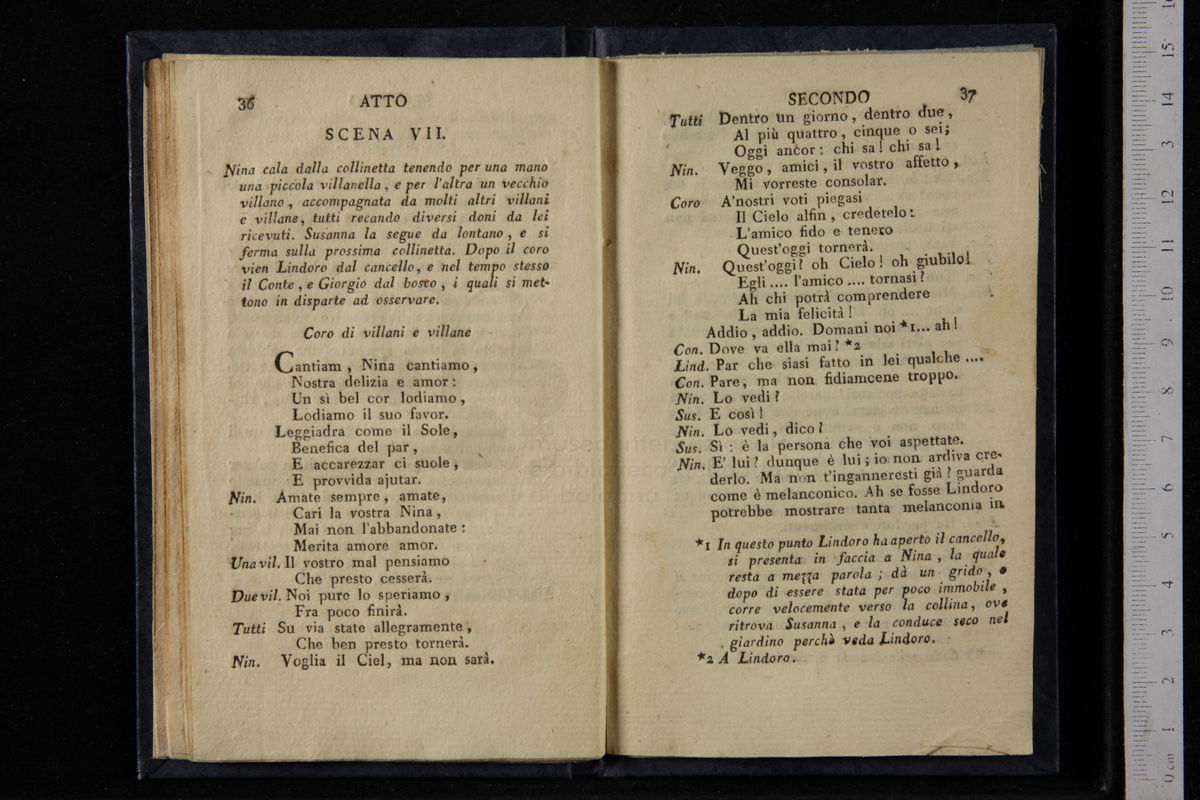 36 ATTO
SCENA VII.
Nina cala dalla collinetta tenendo per una mano
una piccola villanella, e per l'altra un vecchio
villano, accompagnata da molti altri villani
e villane, tutti recando diversi doni da lei
ricevuti. Susanna la segue da lontano, e si
ferma sulla prossima collinetta. Dopo il coro
vien Lindoro dal cancello, e nel tempo stesso
il Conte, e Giorgio dal bosco, i quali si met-
tono in disparte ad osservare.
Coro di villani e villane
Cantiam, Nina cantiamo,
Nostra delizia e amor:
Un sì bel cor lodiamo,
Lodiamo il suo favor.
Leggiadra come il Sole,
Benefica del par,
E accarezzar ci suole,
E provvida ajutar.
Nin. Amate sempre, amate,
Cari la vostra Nina,
Mai non l'abbandonate:
Merita amore amor.
Una vil. Il vostro mal pensiamo
Che presto cesserà.
Due vil. Noi pure lo speriamo,
Fra poco finirà.
Tutti Su via state allegramente,
Che ben presto tornerà.
Nin. Voglia il Ciel, ma non sarà.
SECONDO 37
Tutti Dentro un giorno, dentro due,
Al più quattro, cinque o sei;
Oggi ancor: chi sa! chi sa!
Nin. Veggo, amici, il vostro affetto,
Mi vorreste consolar.
Coro A'nostri voti piegasi
Il Cielo alfin, credetelo:
L'amico fido e tenero
Quest'oggi tornerà.
Nin. Quest'oggi? oh Cielo! oh giubilo!
Egli .... l'amico .... tornasi?
Ah chi potrà comprendere
La mia felicità!
Addio, addio. Domani noi *1... ah!
Con. Dove va ella mai? *2
Lind. Par che siasi fatto in lei qualche ....
Con. Pare, ma non fidiamcene troppo.
Nin. Lo vedi?
Sus. E così!
Nin. Lo vedi, dico?
Sus. Sì: è la persona che voi aspettate.
Nin. E' lui? dunque è lui; io non ardiva cre-
derlo. Ma non t'inganneresti già? guarda
come è melanconico. Ah se fosse Lindoro
potrebbe mostrare tanta melanconia in
*1 In questo punto Lindoro ha aperto il cancello,
si presenta in faccia a Nina, la quale
resta a mezza parola; dà un grido, e
dopo di essere stata per poco immobile,
corre velocemente verso la collina, ove
ritrova Susanna, e la conduce seco nel
giardino perchè veda Lindoro.
*2 A Lindoro.
0 cm 1 2 3 4 5 6 7 8 9 10 11 12 13 14 15